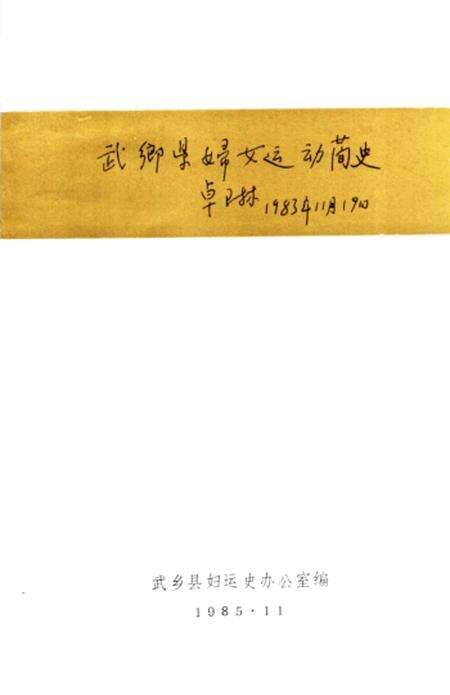 武鄉县婦女运动简史
卓琳1983年11月19日
武乡县妇运史办公室编
1985·11